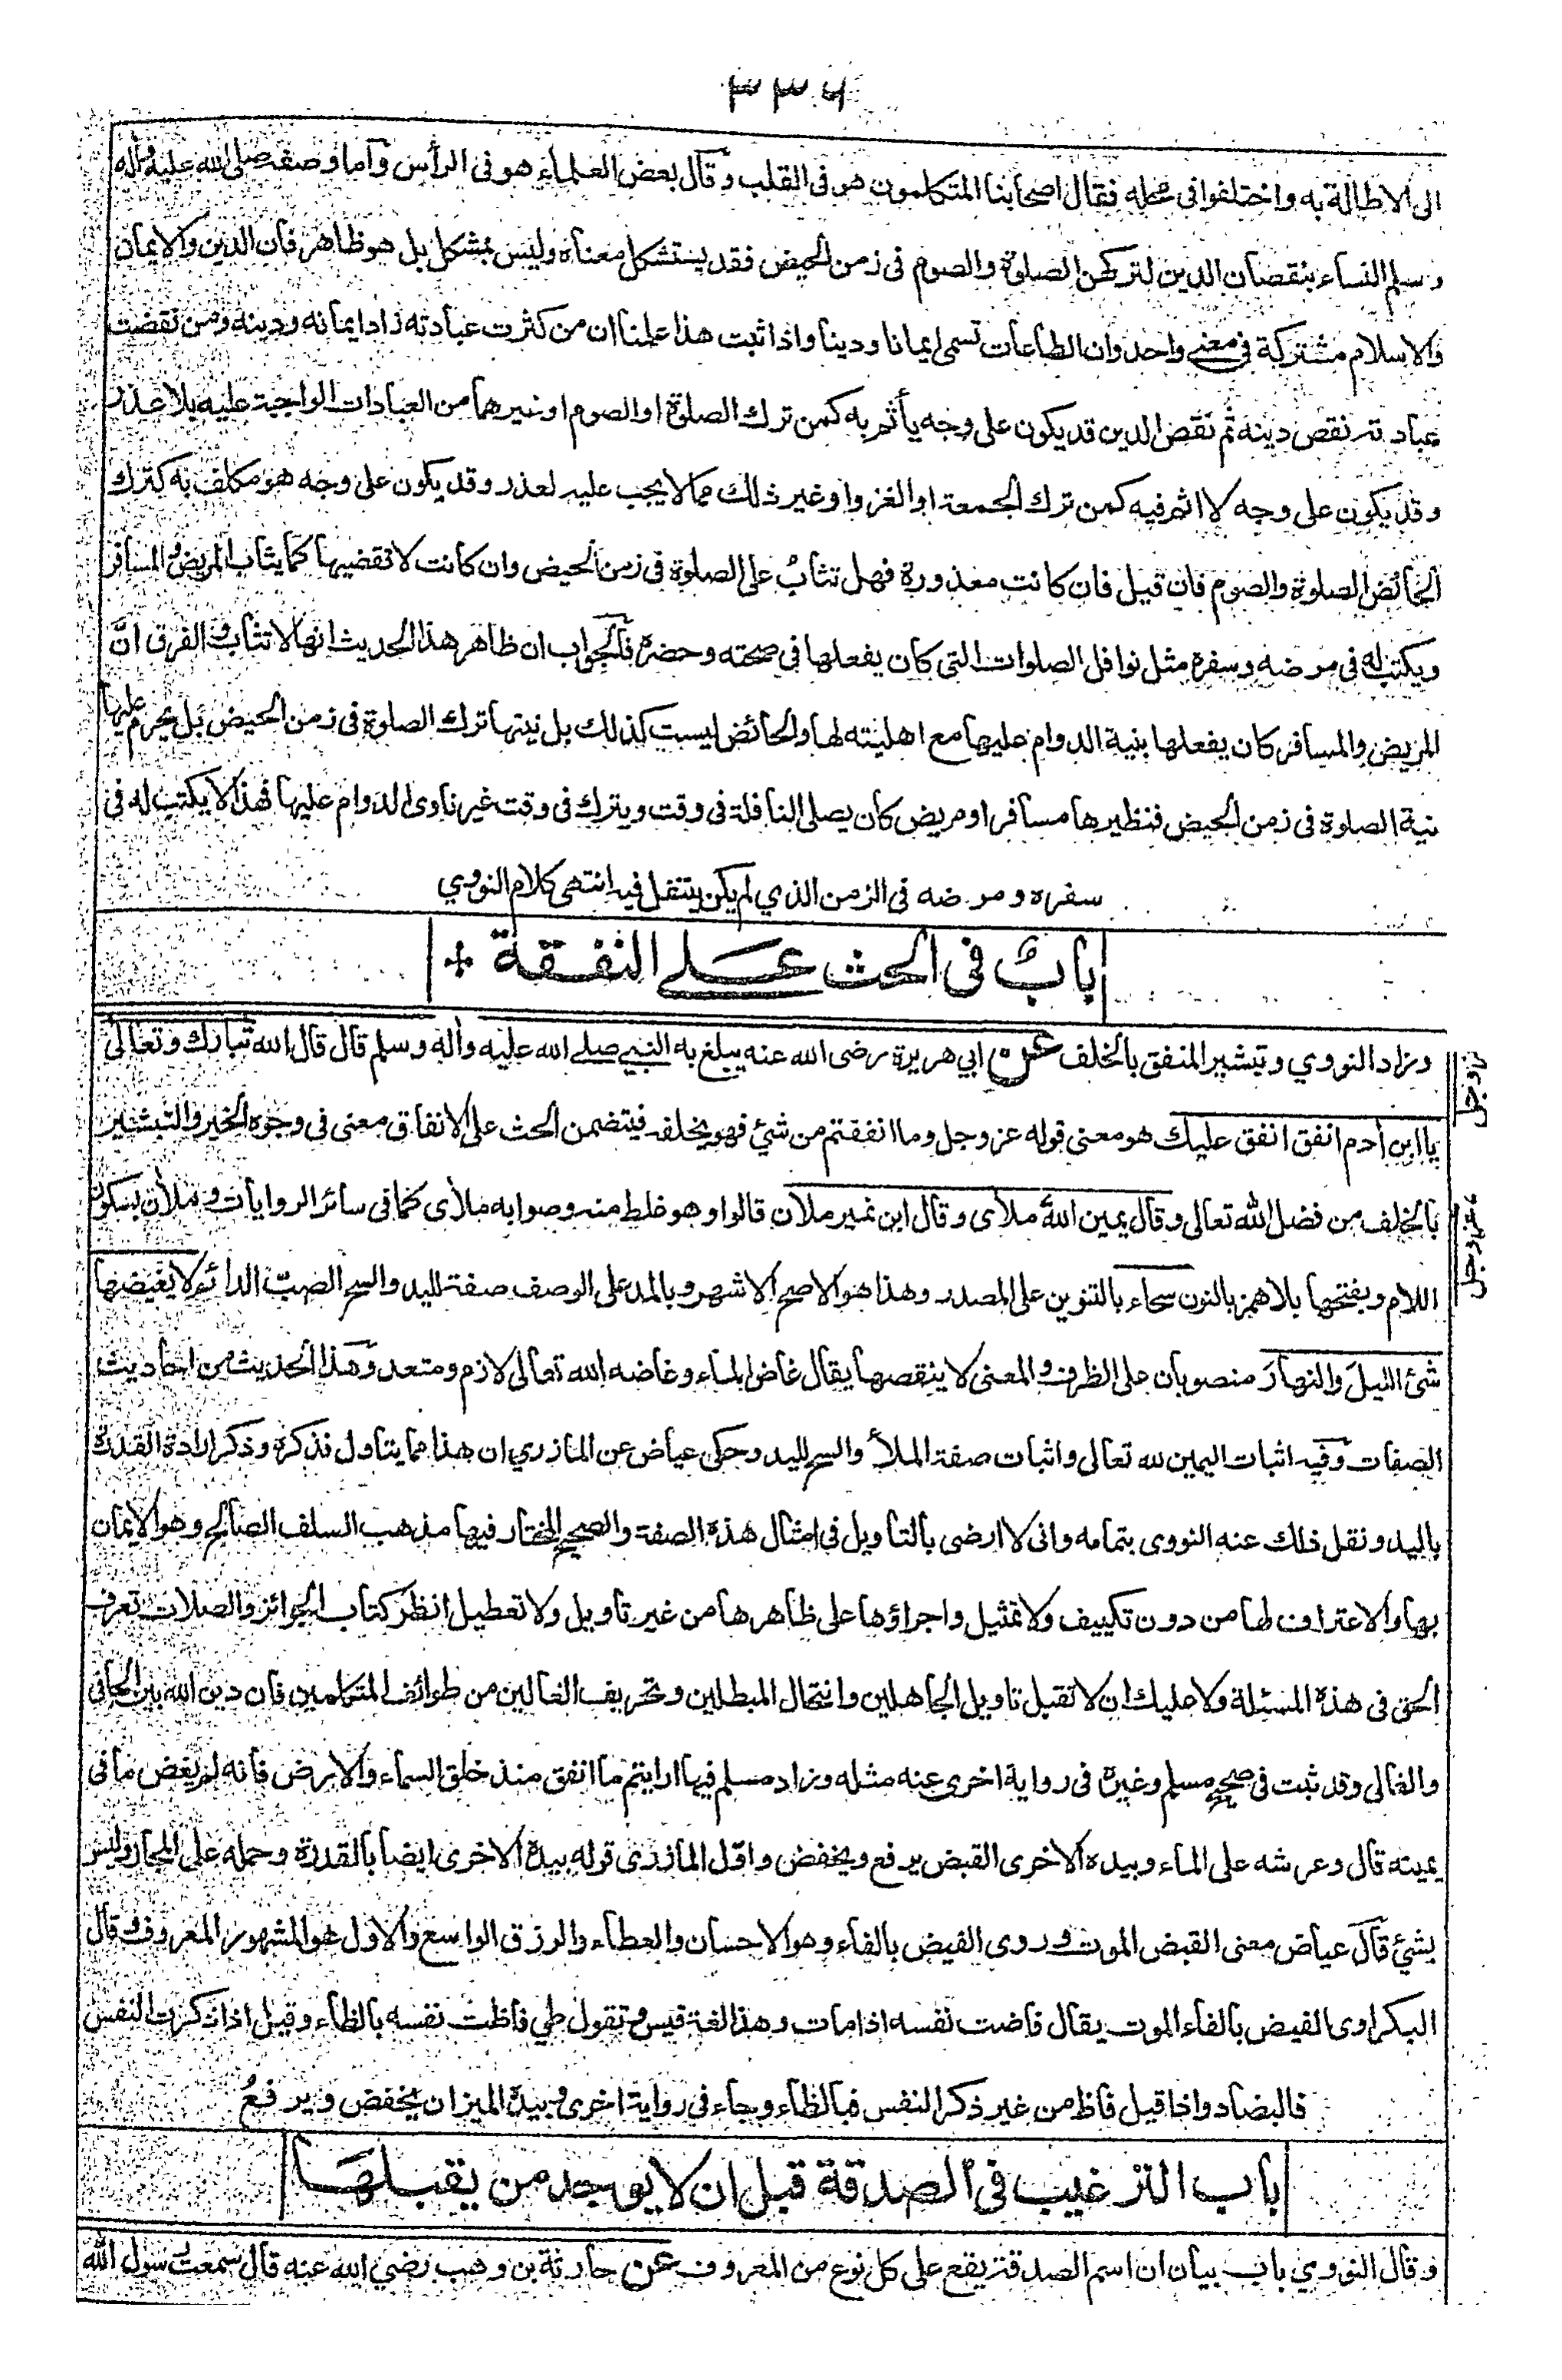 ٣٣٦
الى الاطالة به واختلفوا فى محله فقال اصحابنا المتكلمون هو فى القلب وقال بعض العلماء هو فى الرأس واما وصفه صلى الله عليه واله
وسلم النساء بنقصان الدين لتركهن الصلوة والصوم فى زمن الحيض فقد يستشكل معناه وليس بمشكل بل هو ظاهر فان الدين والايمان
والاسلام مشتركة فى معنى واحد وان الطاعات تسمى ايمانا ودينا واذا ثبت هذا علمنا ان من كثرت عبادته زاد ايمانه ودينه ومن نقصت
عبادته نقص دينه ثم نقص الدين قد يكون على وجه يأثم به كمن ترك الصلوة او الصوم او غيرهما من العبادات الواجبة عليه بلا عذر
وقد يكون على وجه لا اثم فيه كمن ترك الجمعة او الغزو او غير ذلك مما لا يجب عليه لعذر وقد يكون على وجه هو مكلف به كترك
الحائض الصلوة والصوم فان قيل فان كانت معذورة فهل تثاب على الصلوة فى زمن الحيض وان كانت لا تقضيها كما يثاب المريض والمسافر
ويكتب له فى مرضه وسفره مثل نوافل الصلوات التى كان يفعلها فى صحته وحضره فالجواب ان ظاهر هذا الحديث انها لا تثاب والفرق ان
المريض والمسافر كان يفعلها بنية الدوام عليها مع اهليته لها والحائض ليست كذلك بل نيتها ترك الصلوة فى زمن الحيض بل يحرم عليها
نية الصلوة فى زمن الحيض فنظيرها مسافر او مريض كان يصلى النافلة فى وقت ويترك فى وقت غير ناوى الدوام عليها فهذا لا يكتب له فى
سفره ومرضه فى الزمن الذي لم يكن يتنفل فيه انتهى كلام النووي
باب فى الحث على النفقة +
وزاد النووي وتبشير المنفق بالخلف عن ابي هريرة رضى الله عنه يبلغ به النبي صلى الله عليه واله وسلم قال قال الله تبارك وتعالى
يا ابن أدم انفق انفق عليك هو معنى قوله عز وجل وما انفقتم من شئ فهو يخلفه فيتضمن الحث على الانفاق معنى فى وجوه الخير والتبشير
بالخلف من فضل الله تعالى وقال يمين الله ملأى وقال ابن نمير ملآن قالوا وهو غلط منه وصوابه ملأى كما فى سائر الروايات وملأن بسكون
اللام وبفتحها بلا همز بالنون سحاء بالتنوين على المصدر وهذا هو الاصح الاشهر وبالمد على الوصف صفة لليد والسح الصب الدائم لا يغيضها
شئ الليل والنهار منصوبان على الظرف والمعنى لا ينقصها يقال غاض الماء وغاضه الله تعالى لازم ومتعد وهذا الحديث من احاديث
الصفات وفيه اثبات اليمين لله تعالى واثبات صفة الملأ والسح لليد وحكى عياض عن المازري ان هذا مما يتاول فذكره وذكر ارادة القدرة
باليد ونقل ذلك عنه النووى بتمامه وانى لا ارضى بالتاويل فى امثال هذه الصفة والصحيح المختار فيها مذهب السلف الصالح وهو الايمان
بها والاعتراف لها من دون تكييف ولا تمثيل واجراؤها على ظاهرها من غير تاويل ولا تعطيل انظر كتاب الجوائز والصلات تعرف
الحق فى هذه المسئلة ولا عليك ان لا تقبل تاويل الجاهلين وانتحال المبطلين وتحريف الغالين من طوائف المتكلمين فان دين الله بين الجافى
والغالى وقد ثبت فى صحيح مسلم وغيره فى رواية اخرى عنه مثله وزاد مسلم فيها ارايتم ما انفق منذ خلق السماء والارض فانه لم يغض ما فى
يمينه قال وعرشه على الماء وبيده الاخرى القبض يرفع ويخفض واوّل المازرى قوله بيده الاخرى ايضا بالقدرة وحمله على المجاز وليس
بشئ قال عياض معنى القبض الموت وروى الفيض بالفاء وهو الاحسان والعطاء والرزق الواسع والاول هو المشهور المعروف قال
البكراوى الفيض بالفاء الموت يقال فاضت نفسه اذا مات وهذا لغة قيس وتقول طي فاظت نفسه بالظاء وقيل اذا ذكرت النفس
فالبضاد واذا قيل فاظ من غير ذكر النفس فبالظاء وجاء فى رواية اخرى وبيده الميزان يخفض ويرفع
باب الترغيب فى الصدقة قبل ان لا يوجد من يقبلها
وقال النووي باب بيان ان اسم الصدقة يقع على كل نوع من المعروف عن حارثة بن وهب رضي الله عنه قال سمعت رسول الله
عز وجل